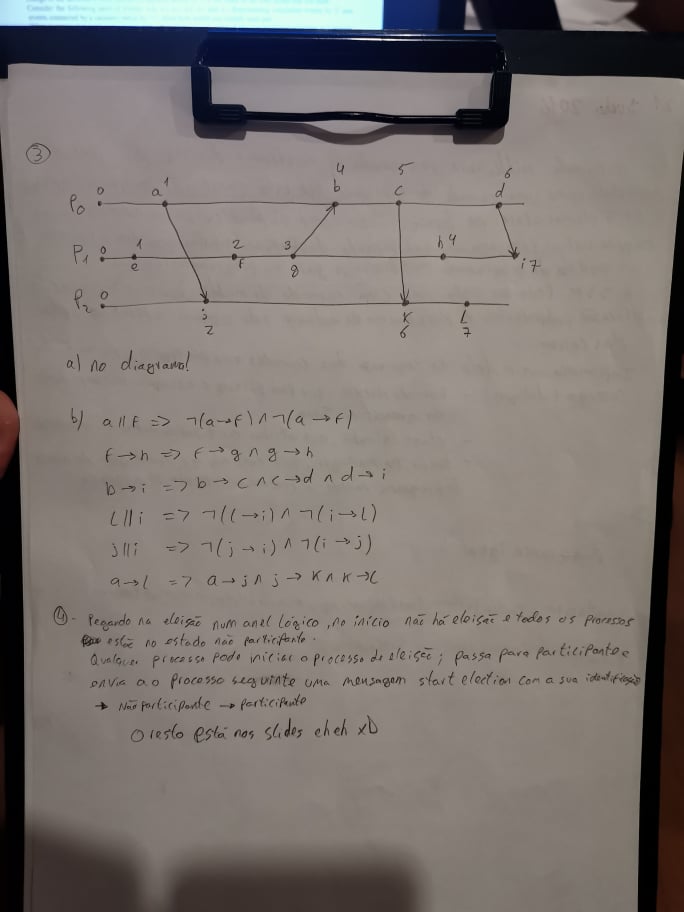 ③
4 5 6
P0 0 a 1 b c d
P1 0 1 e 2 f 3 g h 4 i 7
P2 0 j 2 K 6 L 7
a) no diagrama!
b) a || f => ¬(a→f) ∧ ¬(a→f)
f→h => f→g ∧ g→h
b→i => b→c ∧ c→d ∧ d→i
l || i => ¬(l→i) ∧ ¬(i→l)
j || i => ¬(j→i) ∧ ¬(i→j)
a→l => a→j ∧ j→K ∧ K→l
④ - Pegando na eleição num anel lógico, no início não há eleição e todos os processos
estão no estado não participante.
Qualquer processo pode iniciar o processo de eleição; passa para participante e
envia ao processo seguinte uma mensagem start election com a sua identificação
→ Não participante → participante
O resto está nos slides eheh xD